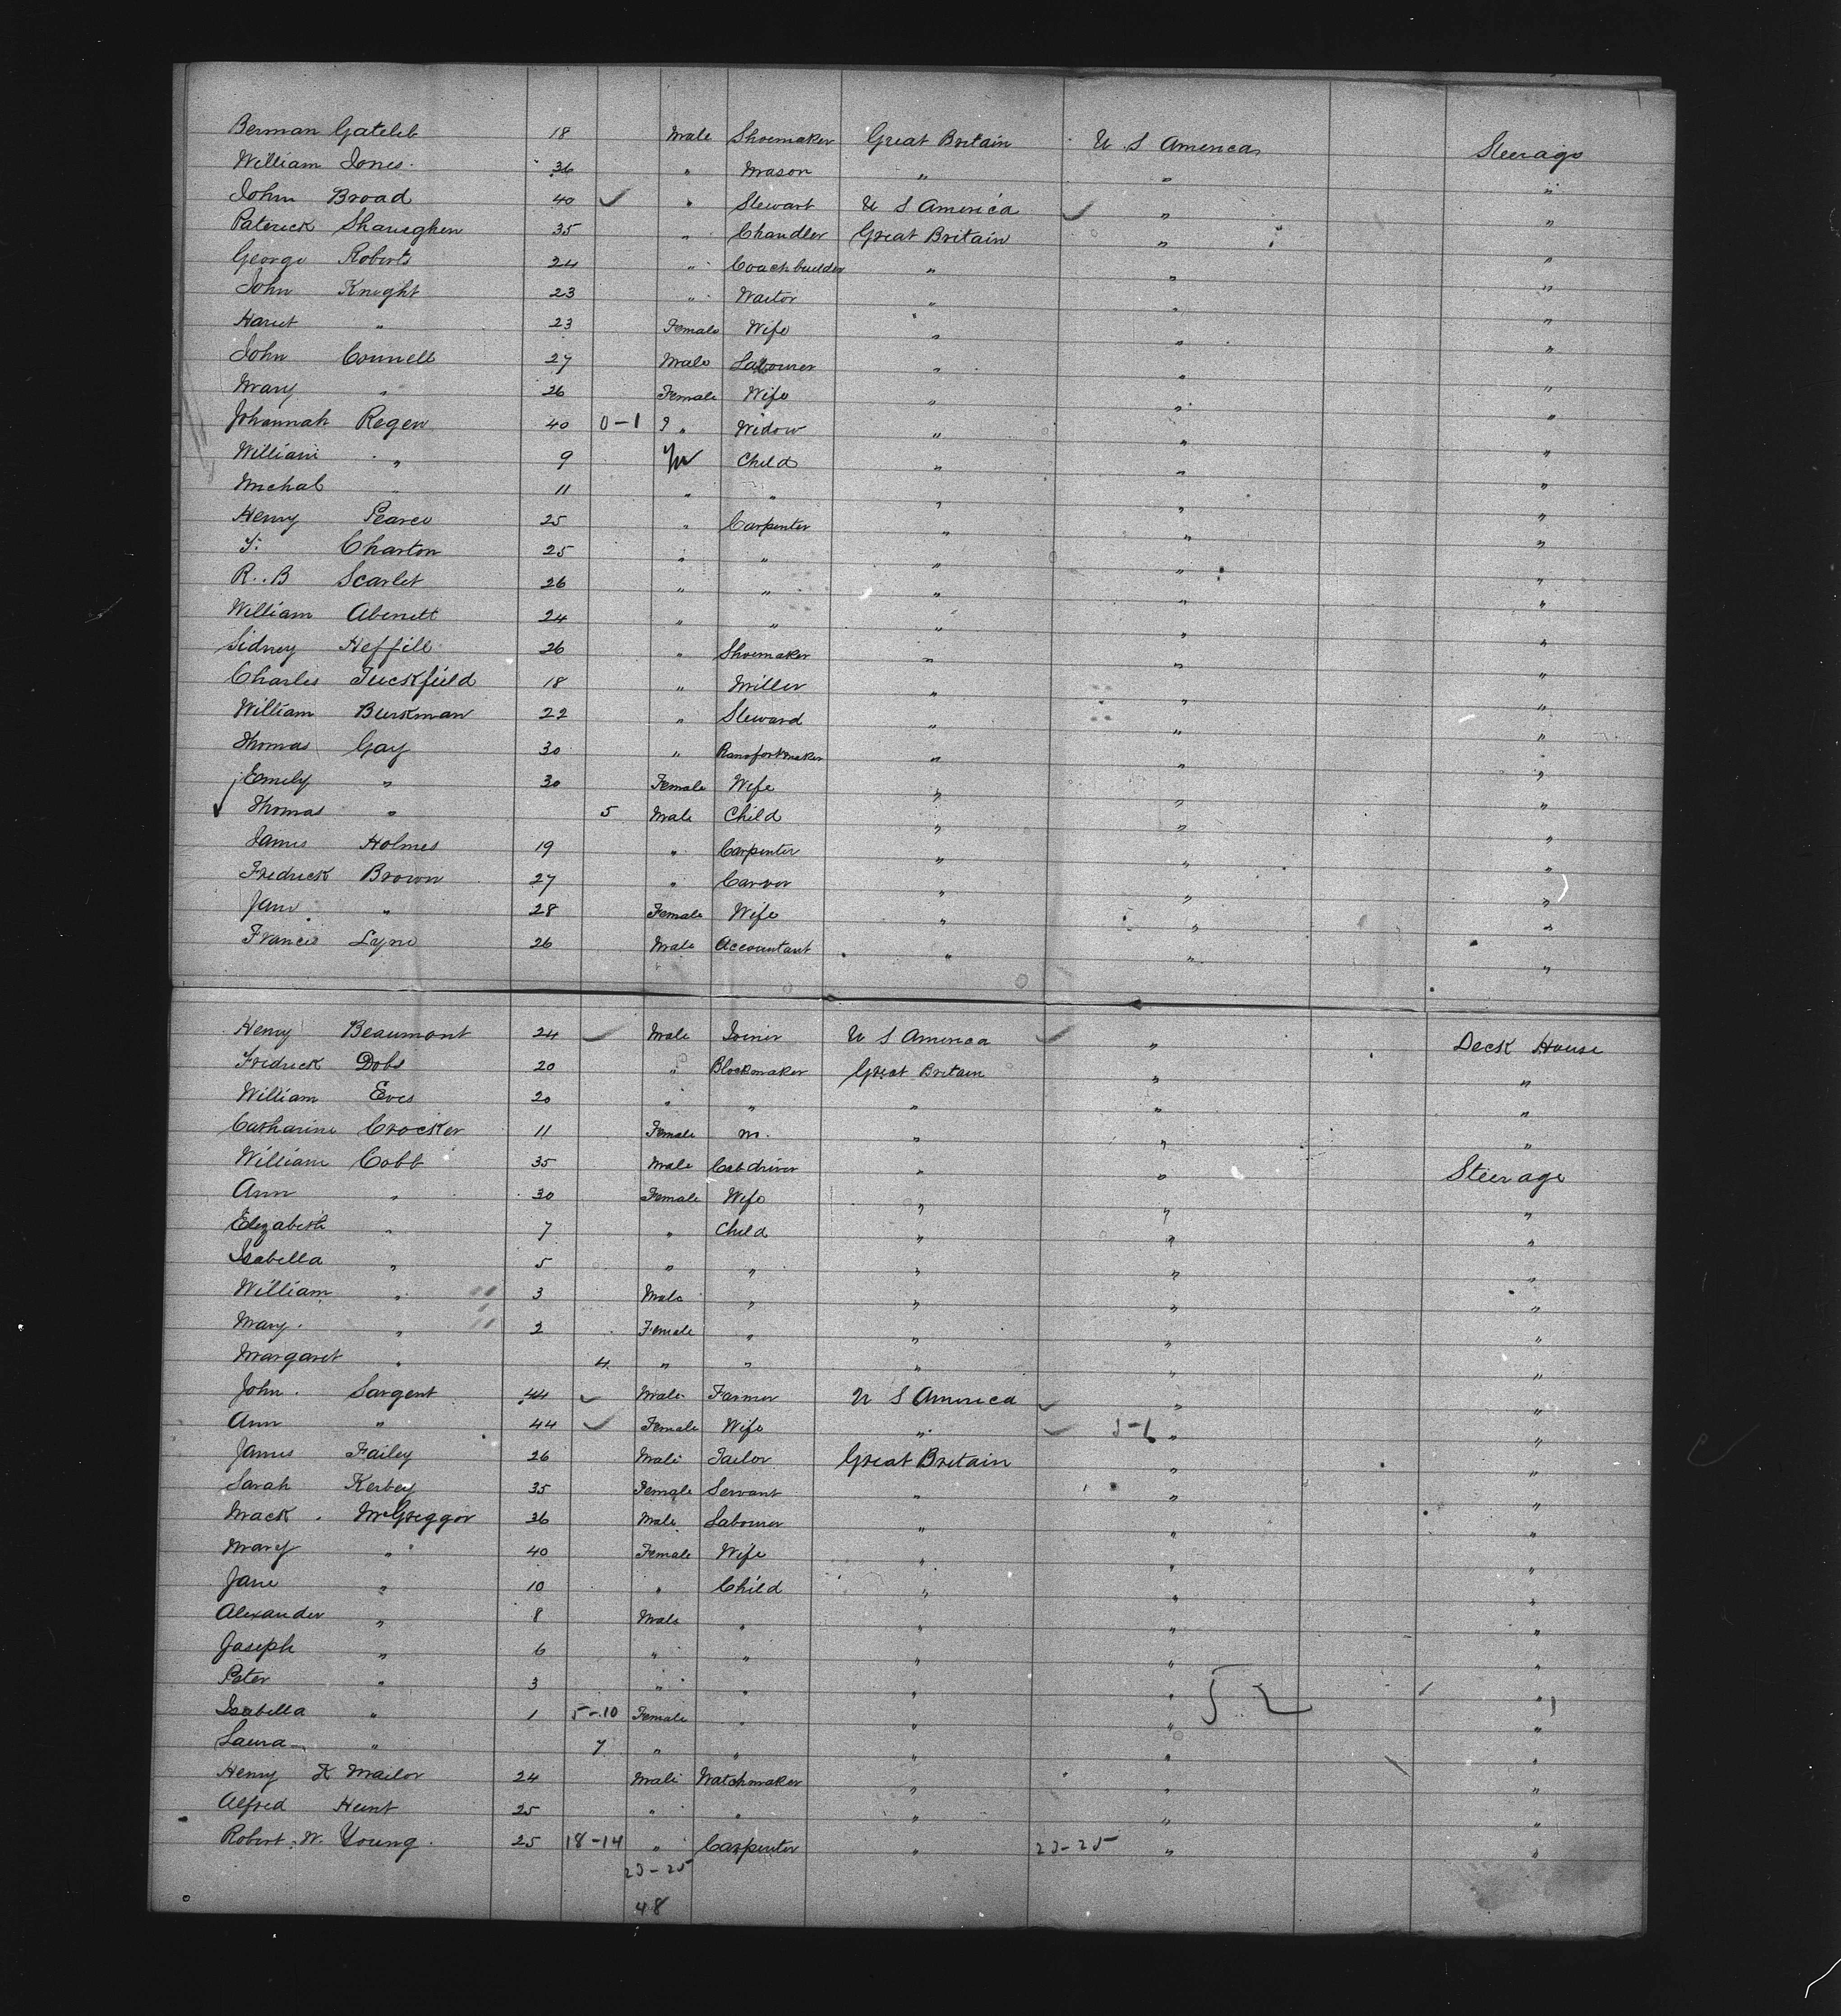 Berman Gateleb 18 Male Shoemaker Great Britain U S America Steerage
William Jones 36 " Mason " " "
John Broad 40 ✓ " Stewart U S America ✓ " "
Paterick Shaneghen 35 " Chandler Great Britain " "
George Roberts 24 " Coachbuilder " " "
John Knight 23 " Waitor " " "
Hariet " 23 Female Wife " " "
John Connell 27 Male Labourer " " "
Mary " 26 Female Wife " " "
Johannah Regen 40 0-1 " Widow " " "
William " 9 M Child " " "
Michal " 11 " " " " "
Henry Pearce 25 " Carpenter " " "
T. Charton 25 " " " " "
R. B Scarlet 26 " " " " "
William Abenett 24 " " " " "
Sidney Heffill 26 " Shoemaker " " "
Charles Tuckfield 18 " Miller " " "
William Burkman 22 " Steward " " "
Thomas Gay 30 " " " "
Emily " 30 Female Wife " " "
✓ Thomas " 5 Male Child " " "
James Holmes 19 " Carpenter " " "
Fredrick Brown 27 " Carver " " "
Jane " 28 Female Wife " " "
Francis Lyne 26 Male Accountant " " "
Henry Beaumont 24 ✓ Male Joiner U S America ✓ " Deck House
Fredrick Dobs 20 " Blockmaker Great Britain " "
William Eves 20 " " " " "
Catharine Crocker 11 Female m. " " "
William Cobb 35 Male Cabdriver " " Steerage
Ann " 30 Female Wife " " "
Elizabeth " 7 " Child " " "
Isabella " 5 " " " " "
William " 3 Male " " " "
Mary " 2 Female " " " "
Margaret " 4 " " " " "
John Sargent 44 ✓ Male Farmer U S America ✓ " "
Ann " 44 ✓ Female Wife " ✓ " "
James Failey 26 Male Tailor Great Britain " "
Sarah Kerbey 35 Female Servant " " "
Mack McGreggor 36 Male Labourer " " "
Mary " 40 Female Wife " " "
Jane " 10 " Child " " "
Alexander " 8 Male " " " "
Joseph " 6 " " " " "
Peter " 3 " " " " "
Isabella " 1 5-10 Female " " " "
Laura " 7 " " " " "
Henry K Mailor 24 Male Watchmaker " " "
Alfred Hunt 25 " " " " "
Robert W. Young 25 18-14 " Carpenter " 23-25 " "
23-25
48